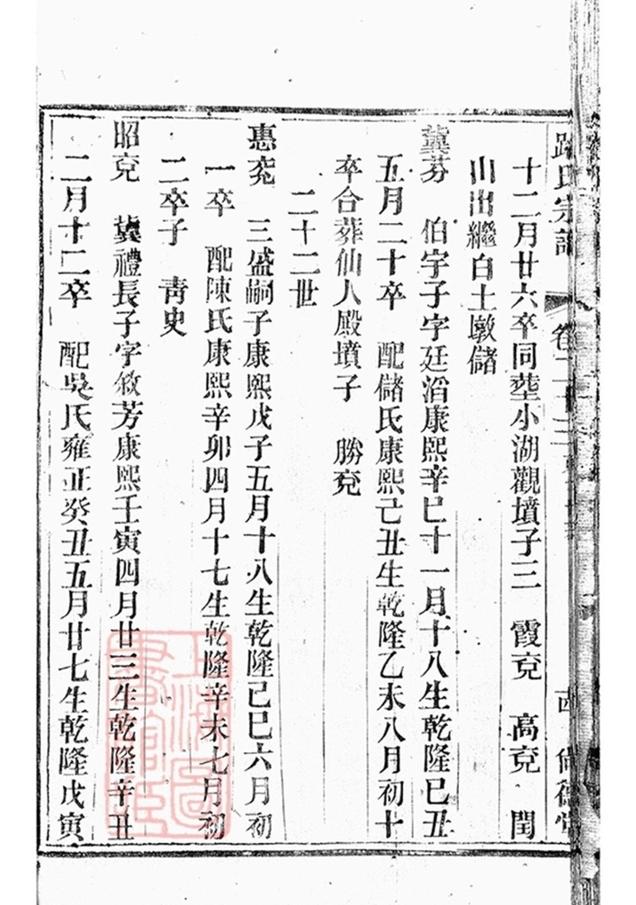 氏宗譜 卷二十三 尙德堂
十二月廿六卒同塟小湖觀墳子三 霞兗 高兗 閏
山出繼白土墩儲
冀芬 伯字子字廷滔康熙辛巳十一月十八生乾隆己丑
五月二十卒 配儲氏康熙己丑生乾隆乙未八月初十
卒合葬仙人殿墳子 勝兗
二十二世
惠兗 三盛嗣子康熙戊子五月十八生乾隆己巳六月初
一卒 配陳氏康熙辛卯四月十七生乾隆辛未七月初
二卒子 靑史
昭兗 冀禮長子字敘芳康熙壬寅四月廿三生乾隆辛丑
二月十二卒 配吳氏雍正癸丑五月廿七生乾隆戊寅
上海圖書館藏